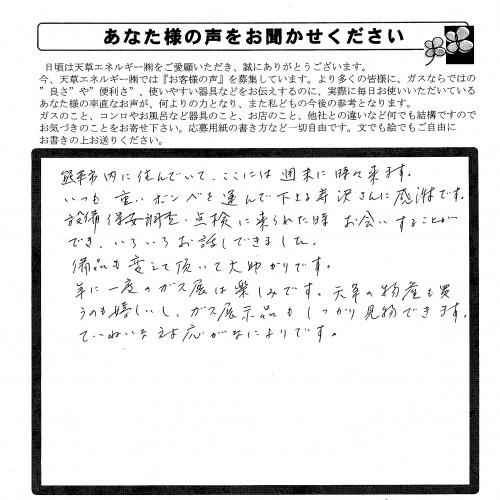 あなた様の声をお聞かせください
日頃は天草エネルギー㈱をご愛顧いただき、誠にありがとうございます。
今、天草エネルギー㈱では『お客様の声』を募集しています。より多くの皆様に、ガスならではの
"良さ"や"便利さ"、使いやすい器具などをお伝えするのに、実際に毎日お使いいただいている
あなた様の率直なお声が、何よりの力となり、また私どもの今後の参考となります。
ガスのこと、コンロやお風呂など器具のこと、お店のこと、他社との違いなど何でも結構ですので
お気づきのことをお寄せ下さい。応募用紙の書き方など一切自由です。文でも絵でもご自由に
お書きの上お送りください。
熊本市内に住んでいて、ここには週末に時々来ます。
いつも重いボンベを運んで下さる寿沢さんに感謝です。
設備保安調査・点検に来られた時お会いすることが
でき、いろいろお話しできました。
備品も変えて頂いて大助かりです。
年に一度のガス展は楽しみです。天草の物産も買
うのも嬉しいし、ガス展示品もしっかり見物できます。
ていねいな対応がなによりです。